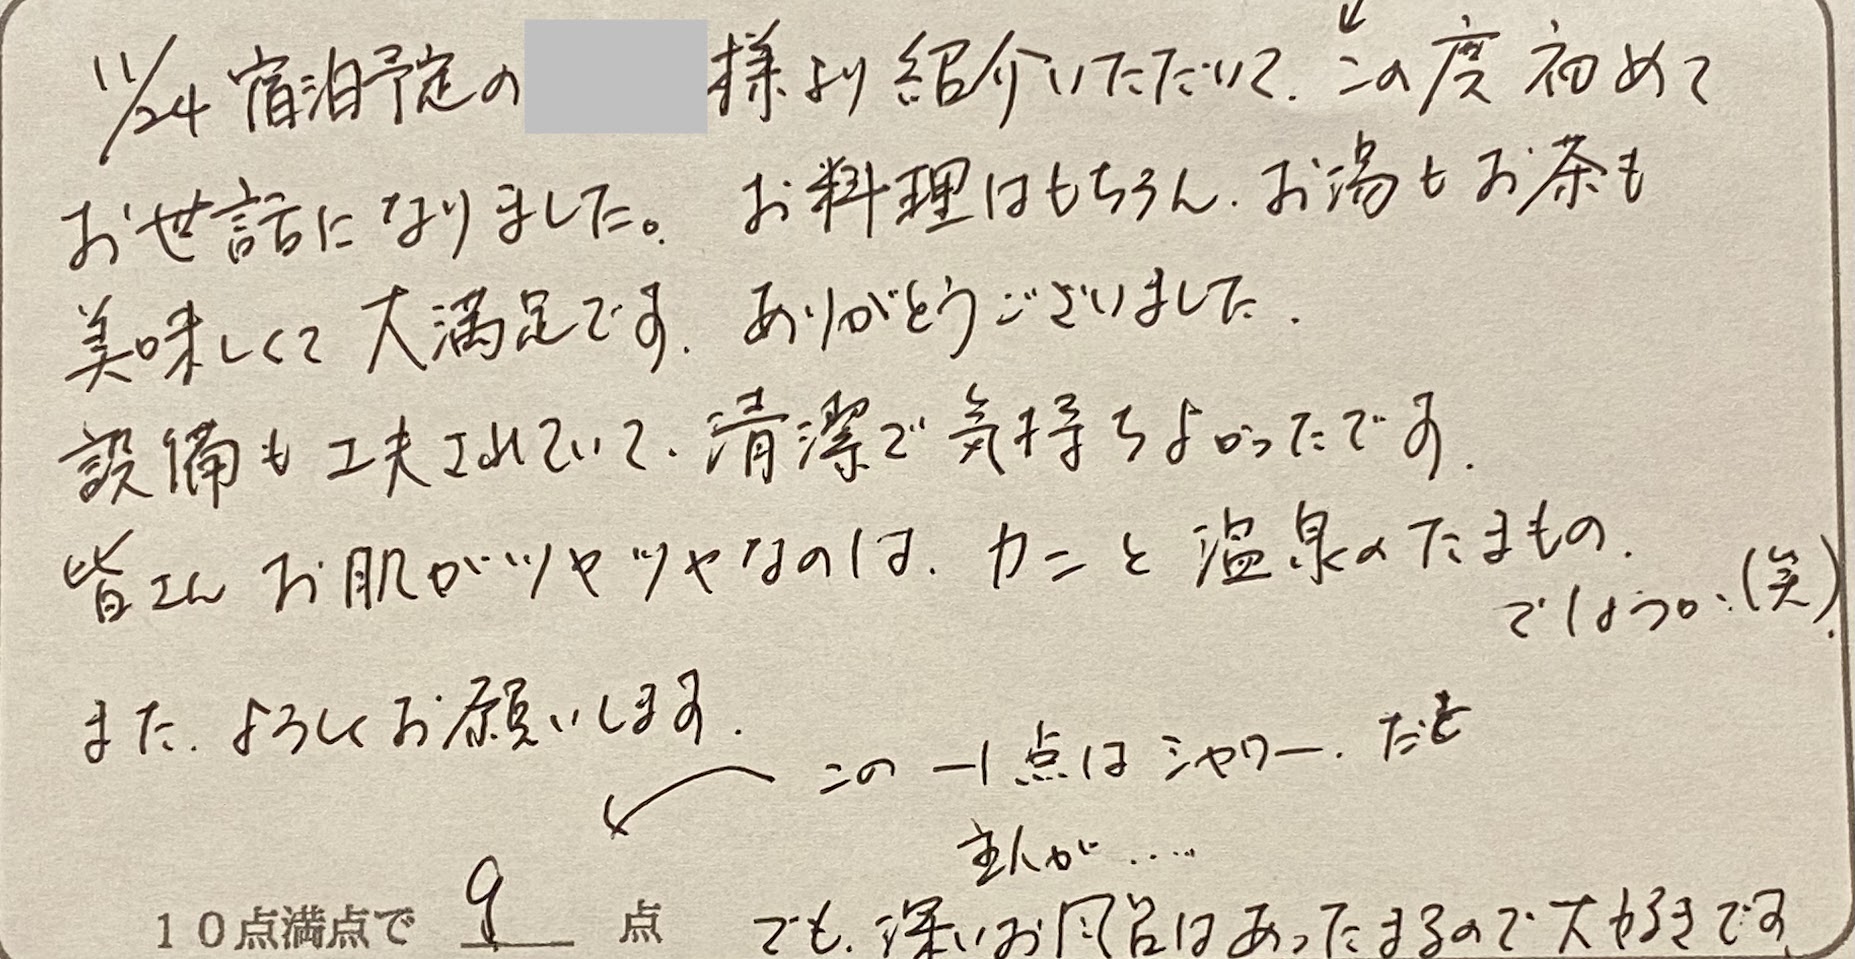 11/24 宿泊予定の 様より紹介いただいて、この度初めて
お世話になりました。お料理はもちろん、お湯もお茶も
美味しくて大満足です。ありがとうございました。
設備も工夫されていて、清潔で気持ちよかったです。
皆さんお肌がツヤツヤなのは、カニと温泉のたまもの、
でしょうか、(笑)
また、よろしくお願いします。
この -1点はシャワー、だと
主人が....
10点満点で 9 点
でも、深いお風呂はあったまるので大好きです